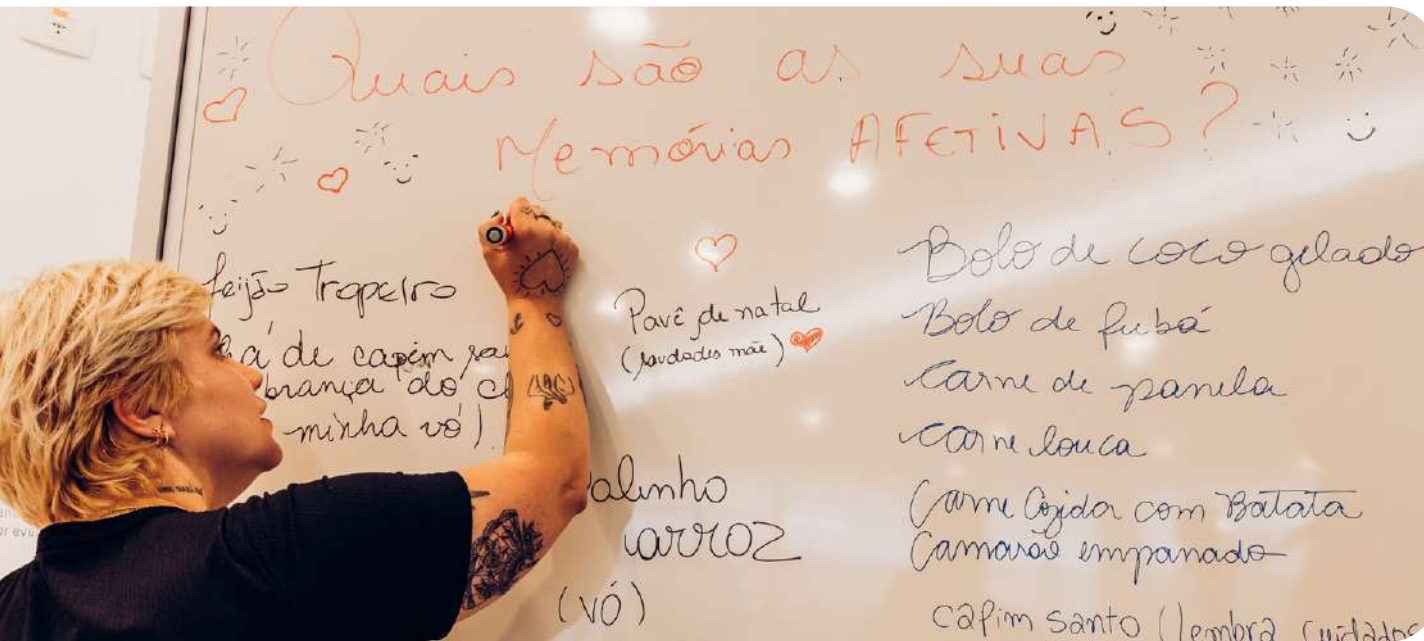 Quais são as suas
Memórias AFETIVAS?
feijão Tropeiro
de capim
brança do
minha vó)
Pavê de natal
(saudades mãe)
alinho
arroz
(vó)
Bolo de coco gelado
Bolo de fubá
Carne de panela
Carne louca
Carne Cozida com Batata
Camarão empanado
capim santo (lembra cuidados